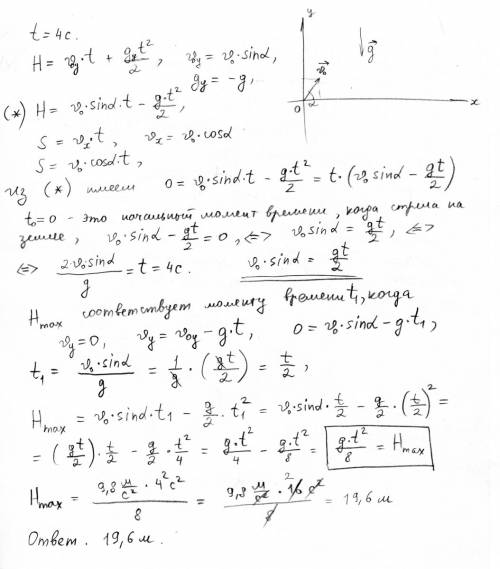 t = 4c.
H = v₀y·t + gyt²/2, v₀y = v₀·sinα,
gy = -g,
(*) H = v₀·sinα·t - g·t²/2,
S = vx·t, vx = v₀·cosα
S = v₀·cosα·t,
y
g
v₀
0
α
x
Из (*) имеем 0 = v₀·sinα·t - g·t²/2 = t·(v₀sinα - gt/2)
t₀=0 - это начальный момент времени, когда стрела на
земле, v₀·sinα - gt/2 = 0, <=> v₀sinα = gt/2, <=>
<=> 2v₀sinα/g = t = 4c. v₀·sinα = gt/2
Hmax соответствует моменту времени t₁, когда
vy = 0, vy = v₀y - g·t, 0 = v₀·sinα - g·t₁,
t₁ = v₀·sinα/g = 1/g·(gt/2) = t/2,
Hmax = v₀·sinα·t₁ - g/2·t₁² = v₀·sinα·t/2 - g/2·(t/2)² =
= (gt/2)·t/2 - g/2·t²/4 = g·t²/4 - g·t²/8 = g·t²/8 = Hmax
Hmax = 9,8 м/c²·4²c²/8 = 9,8 м/c²·16 c²/8 = 19,6 м
2
Ответ. 19,6 м.